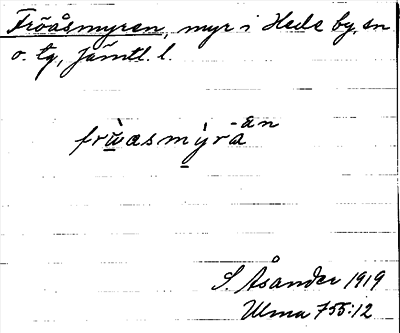 Fröåsmyren, myr i Hede by, sn
o. tg, Jämtl. l.
frẁasmỳrä-än
S. Åsander 1919
Ulma 755:12